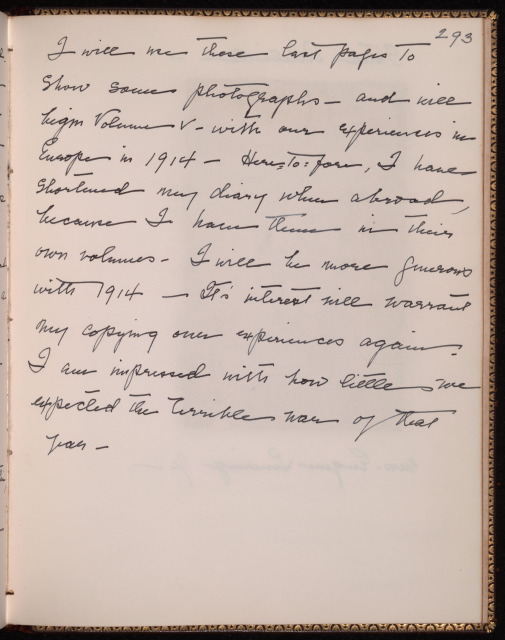 293
I will use these last pages to
show some photographs - and will
begin Volume V - with our experiences in
Europe in 1914 - Here=To=fore, I have
shortened my diary when abroad,
because I have them in their
own volumes - I will be more generous
with 1914 - It's interest will warrant
my copying our experiences again.
I am impressed with how little we
expected the terrible war of that
year -